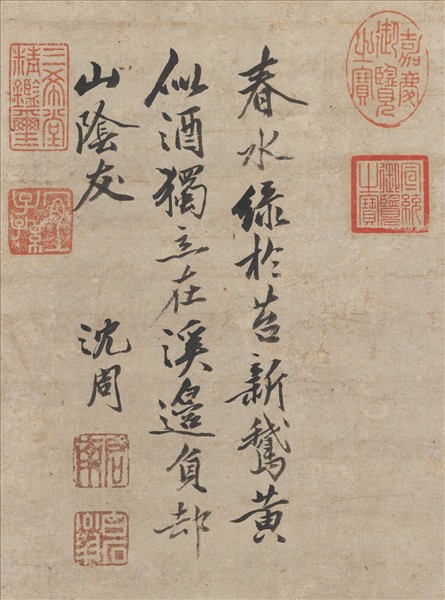 嘉慶御覽之寶
宣統御覽之寶
春水緑於苔新鵝黃
似酒獨立在溪邊負却
山陰友
沈周
啓南
白石翁
三希堂精鑑璽
宜子孫